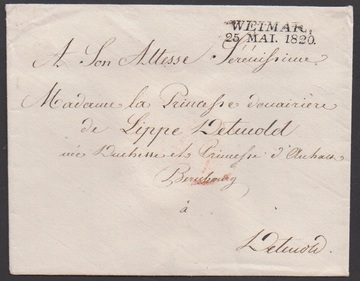 WEIMAR,
25 MAI. 1820.
A Son Altesse Sérénissime
Madame la Princesse douairière
de Lippe Detmold
née Duchesse et Princesse d'Anhalt
Bernbourg
à
Detmold.